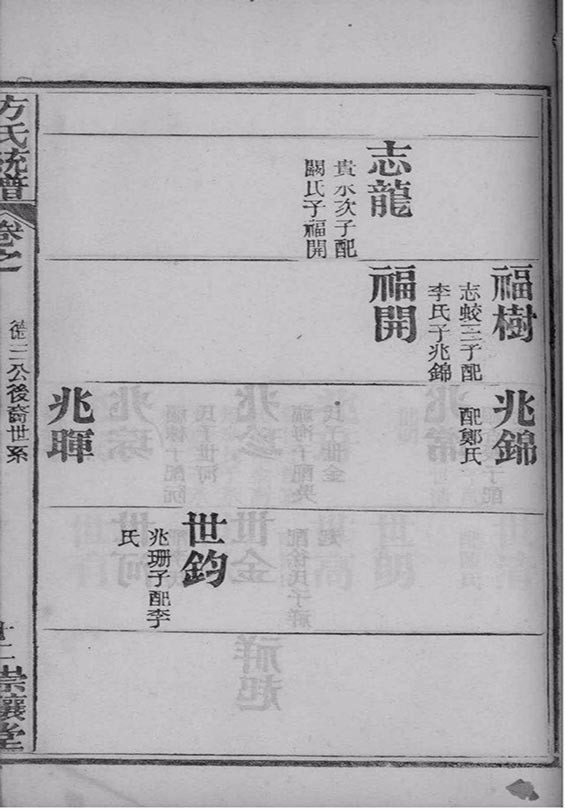 志龍
貴水次子配
闕氏子福開
福樹
志蛟三子配
李氏子兆錦
福開
兆錦
配鄭氏
兆暉
世鈞
兆珊子配李
氏
方氏統譜
卷之
德三公後裔世系
十二